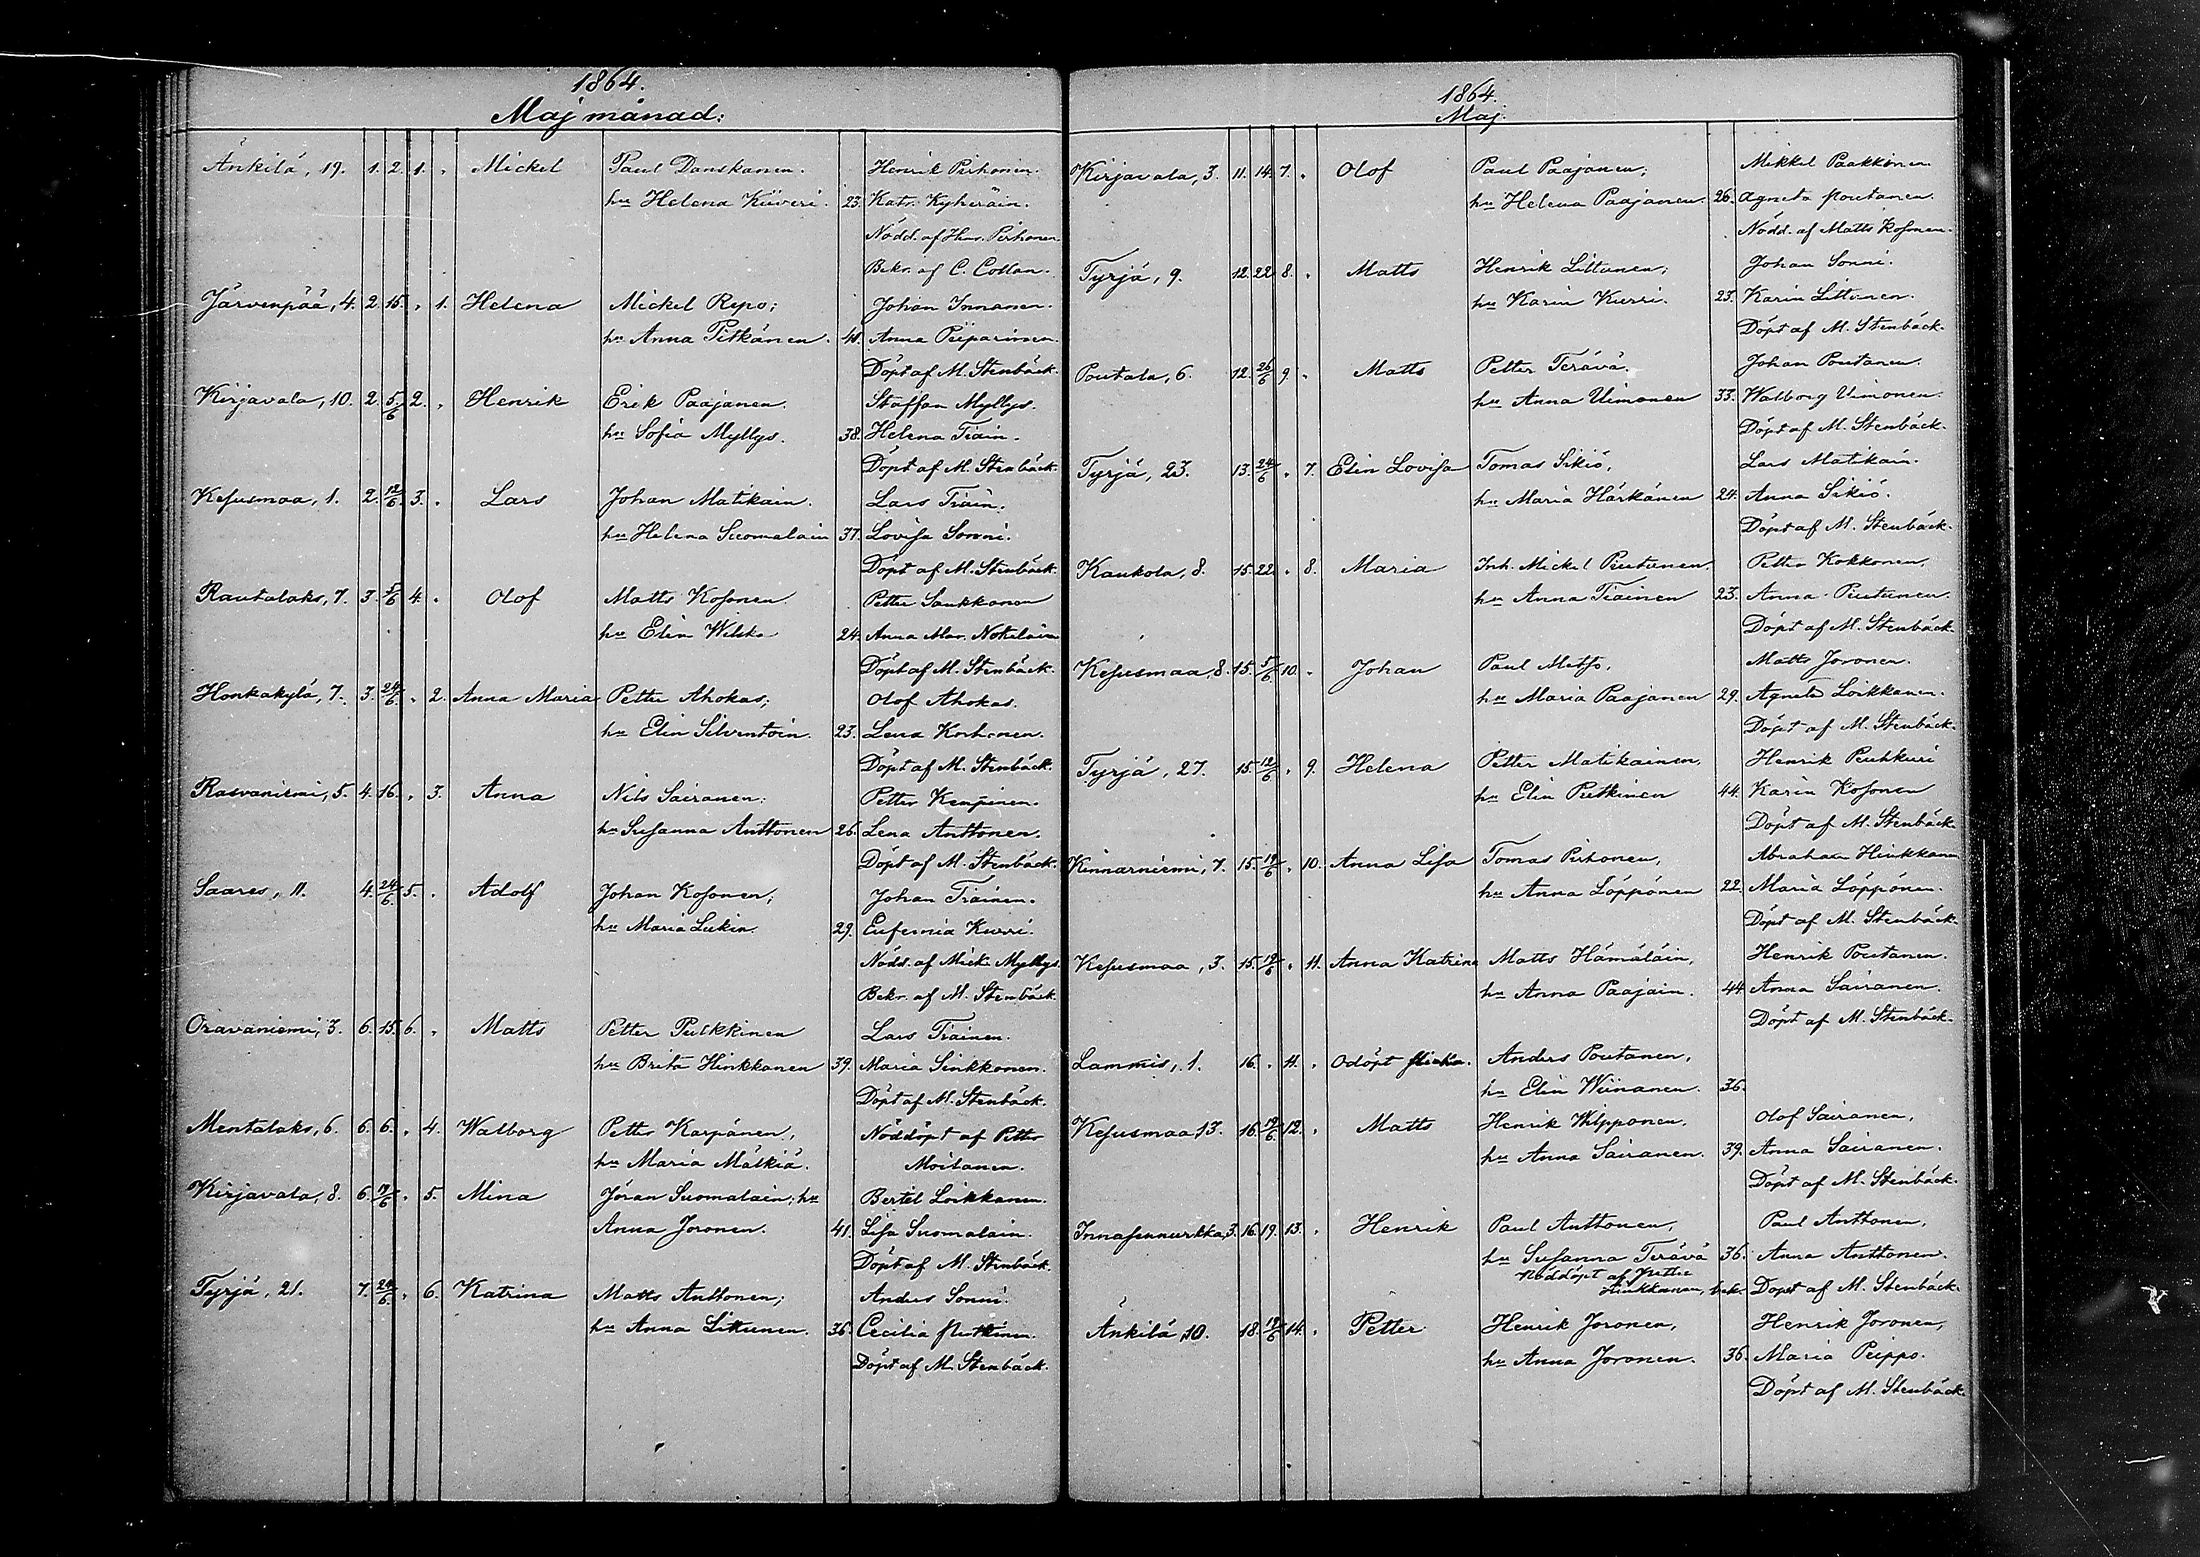 1864.
Maj månad:
Änkilä, 19. 1. 2. 1. " Mickel Paul Danskanen. Henrik Pirhonen.
hu Helena Kiiveri. 23. Katr. Kyheräin.
Nödd. af Hinr. Pirhonen
Bekr. af C. Collan.
Järvenpää, 4. 2. 15. " 1. Helena Mickel Repo; Johan Innanen.
hu Anna Pitkänen. 41. Anna Piiparinen.
Döpt af M. Stenbäck.
Kirjavala, 10. 2. 5/6 2. " Henrik Erik Paajanen. Staffan Myllys.
hu Sofia Myllys. 38. Helena Tiain.
Döpt af M. Stenbäck.
Kesusmaa, 1. 2. 12/6 3. " Lars Johan Matikain. Lars Tiain.
hu Helena Suomalain 37. Lovisa Sonni.
Döpt af M. Stenbäck.
Rautalaks, 7. 3. 5/6 4. " Olof Matts Kosonen. Petter Saukkonen
hu Elin Wilska 24. Anna Mar. Nokelain
Döpt af M. Stenbäck.
Honkakylä, 7. 3. 24/6 " 2. Anna Maria Petter Ahokas; Olof Ahokas.
hu Elin Silventoin. 23. Lena Korhonen.
Döpt af M. Stenbäck.
Rasvaniemi, 5. 4. 16. " 3. Anna Nils Sairanen; Petter Kempinen.
hu Susanna Anttonen 26. Lena Anttonen.
Döpt af M. Stenbäck.
Saares, 11. 4. 24/6 5. " Adolf Johan Kosonen; Johan Tiainen.
hu Maria Lukin. 29. Eufemia Kurri.
Nödd. af Mick. Myllys.
Bekr. af M. Stenbäck.
Oravaniemi, 3. 6. 15. 6. " Matts Petter Pulkkinen Lars Tiainen.
hu Brita Hinkkanen 39. Maria Sinkkonen.
Döpt af M. Stenbäck.
Mentalaks, 6. 6. 6. " 4. Walborg Petter Karpänen, Nöddöpt af Petter
hu Maria Mälkiä. Moilanen.
Kirjavala, 8. 6. 7/6 " 5. Mina Jöran Suomalain; hu Bertil Loikkanen.
Anna Joronen. 41. Lisa Suomalain.
Döpt af M. Stenbäck.
Tyrjä, 21. 7. 24/6 " 6. Katrina Matts Anttonen; Anders Sonni.
hu Anna Litunen. 36. Cecilia
Döpt af M. Stenbäck.
1864.
Maj.
Kirjavala, 3. 11. 14. 7. " Olof Paul Paajanen; Mikkel Paakkinen
hu Helena Paajanen. 26. Agneta Poutanen.
Nödd. af Matts Kosonen.
Tyrjä, 9. 12. 22. 8. " Matts Henrik Littunen; Johan Sonni.
hu Karin Kurri. 23. Karin Littunen.
Döpt af M. Stenbäck.
Poutala, 6. 12. 26/6 9. " Matts Petter Terävä. Johan Poutanen.
hu Anna Uimonen 33. Walborg Uimonen.
Döpt af M. Stenbäck.
Tyrjä, 23. 13. 24/6 " 7. Elin Lovisa Tomas Sikiö, Lars Matikain.
hu Maria Härkänen 24. Anna Sikiö.
Döpt af M. Stenbäck.
Kaukola, 8. 15. 22. " 8. Maria Inh. Mickel Poutanen. Petter Kokkonen.
hu Anna Tiainen 23. Anna Poutanen.
Döpt af M. Stenbäck.
Kesusmaa, 8. 15. 5/6 10. " Johan Paul Metso. Matts Joronen.
hu Maria Paajanen 29. Agneta Loikkanen.
Döpt af M. Stenbäck.
Tyrjä, 27. 15. 12/6 " 9. Helena Petter Matikainen. Henrik Puhkuri
hu Elin Putkinen 44. Karin Kosonen
Döpt af M. Stenbäck.
Kinnarniemi, 7. 15. 19/6 " 10. Anna Lisa Tomas Pirhonen, Abraham Hinkkanen
hu Anna Löppönen 22. Maria Löppönen.
Döpt af M. Stenbäck.
Kesusmaa, 3. 15. 19/6 " 11. Anna Katrina Matts Hämäläin, Henrik Poutanen.
hu Anna Paajain. 44. Anna Sairanen.
Döpt af M. Stenbäck.
Lammis, 1. 16. " 11. " Odöpt Anders Poutanen,
hu Elin Wiinanen. 36.
Kesusmaa, 13. 16. 19/6 12. " Matts Henrik Wilpponen. Olof Sairanen,
hu Anna Sairanen. 39. Anna Sairanen.
Döpt af M. Stenbäck.
Innasennurkka, 3. 16. 19. 13. " Henrik Paul Anttonen, Paul Anttonen,
hu Susanna Terävä 36. Anna Anttonen.
Nöddöpt af Petter
Hinkkanen, bekr. Döpt af M. Stenbäck.
Änkilä, 10. 18. 19/6 14. " Petter Henrik Joronen, Henrik Joronen,
hu Anna Joronen. 36. Maria Peippo.
Döpt af M. Stenbäck.